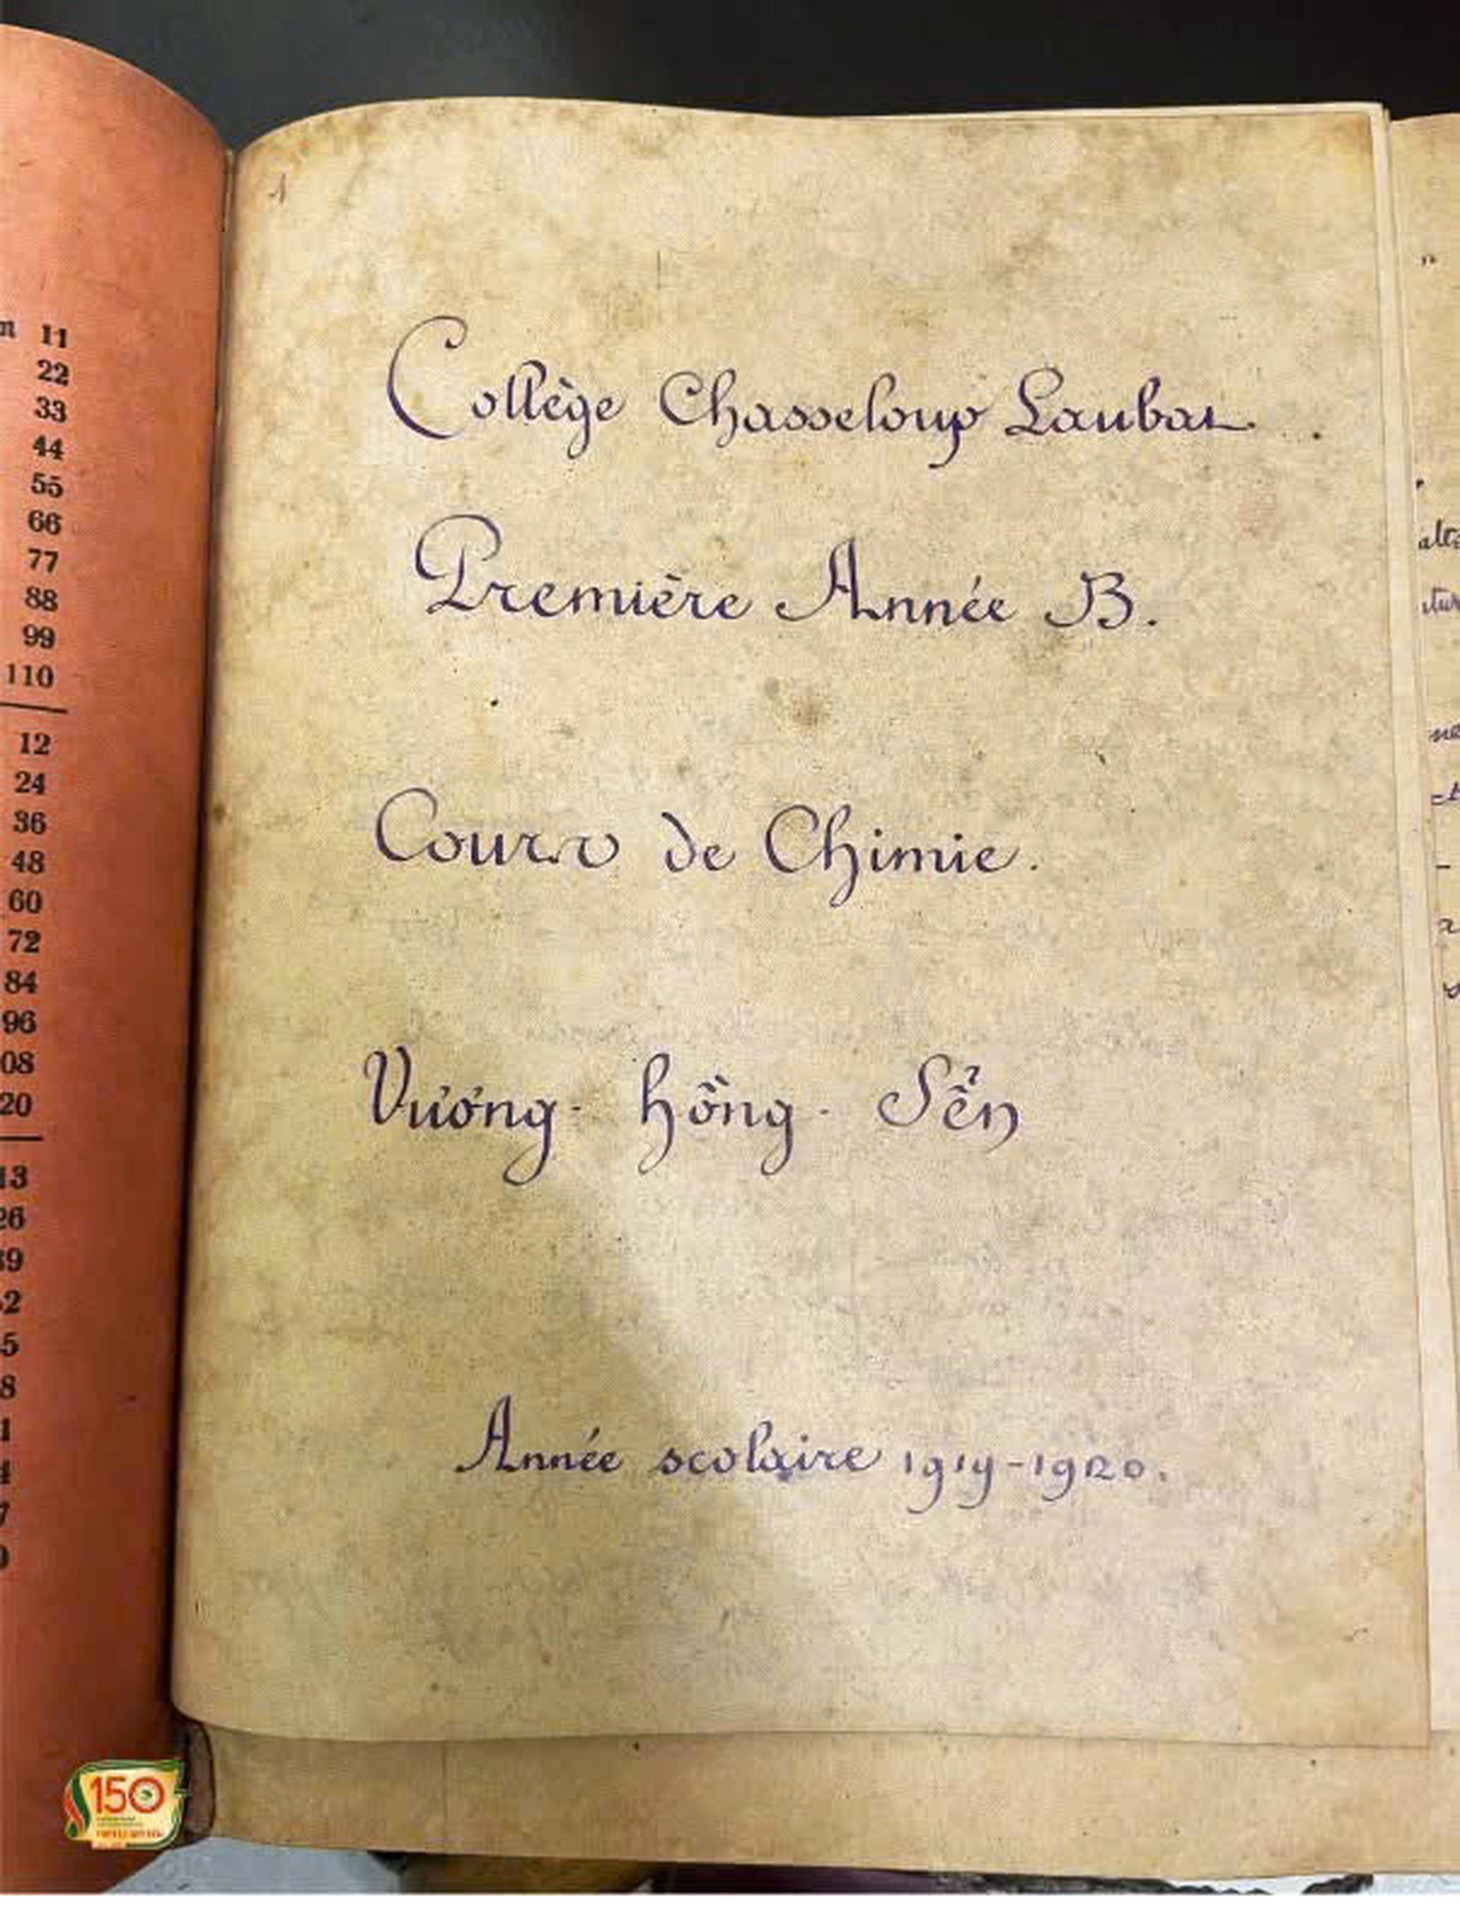 n 11
22
33
44
55
66
77
88
99
110
12
24
36
48
60
72
84
96
08
20
13
26
39
Collège Chasseloup Laubat.
Première Année B.
Cours de Chimie.
Vương - hồng - Sển
Année scolaire 1919-1920.
150